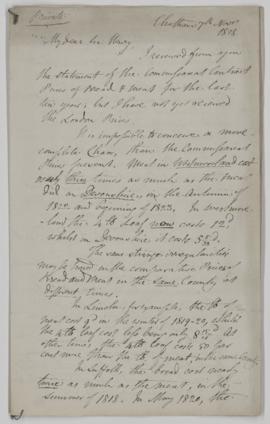 Private
Chatham 7th Novr
1828
My dear Sir Henry
I received from you
the statement of the Commissariat Contract
Prices of Bread & Meat for the last
ten years; but I have not yet received
the London Prices.
It is impossible to conceive a more
complete Chaos, than the Commissariat
Prices present. Meat in Westmoreland cost
nearly three times as much as the meat
did in Devonshire, in the Autumn of
1822 and beginning of 1823. In Westmore-
land the 4 lb Loaf now costs 12d
whilst in Devonshire it costs
The same strange irregularities
may be found in the comparative Prices of
Bread and Meat in the same County, at
different times.
In Lincoln, for example, the lb of
meat cost 9d in the winter of 1819-20, whilst
the 4 lb loaf cost
other times, the 4 lb loaf cost
cost more than the lb of meat, in the same County
In Suffolk, the bread cost nearly
twice as much as the meat, in the
Summer of 1818. In May 1820, the